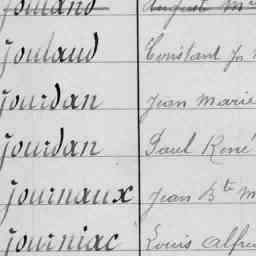 Jouland Auguste M
Jouland Constant J
Jourdan Jean Marie
Jourdan Paul René
Journaux Jean Bte M
Journiac Louis Alfre